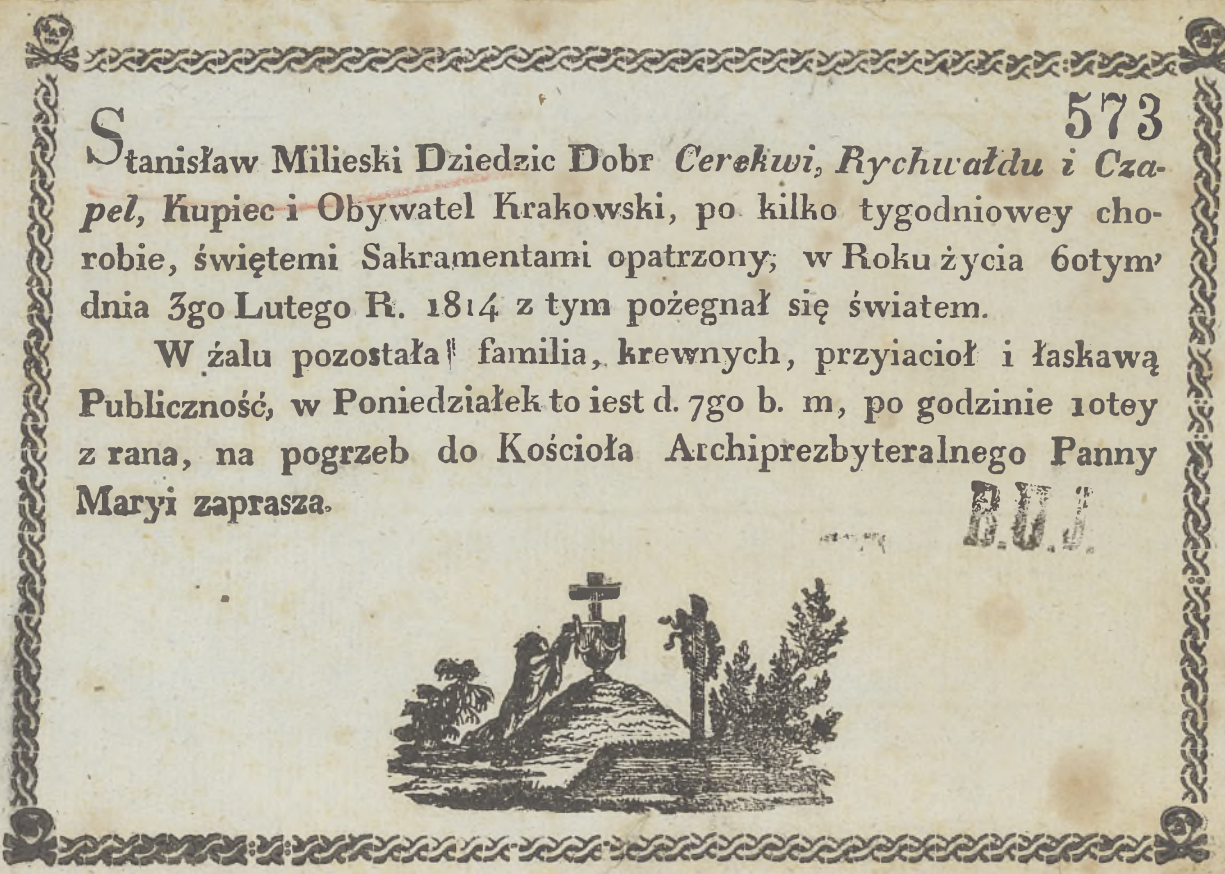 573
Stanisław Milieski Dziedzic Dobr Cerekwi, Rychwałdu i Cza-
pel, Kupiec i Obywatel Krakowski, po kilko tygodniowey cho-
robie, świętemi Sakramentami opatrzony; w Roku życia 60tym’
dnia 3go Lutego R. 1814 z tym pożegnał się światem.
W żalu pozostała familia, krewnych, przyiacioł i łaskawą
Publiczność, w Poniedziałek to iest d. 7go b. m, po godzinie 10tey
z rana, na pogrzeb do Kościoła Archiprezbyteralnego Panny
Maryi zaprasza.
B.U.J.